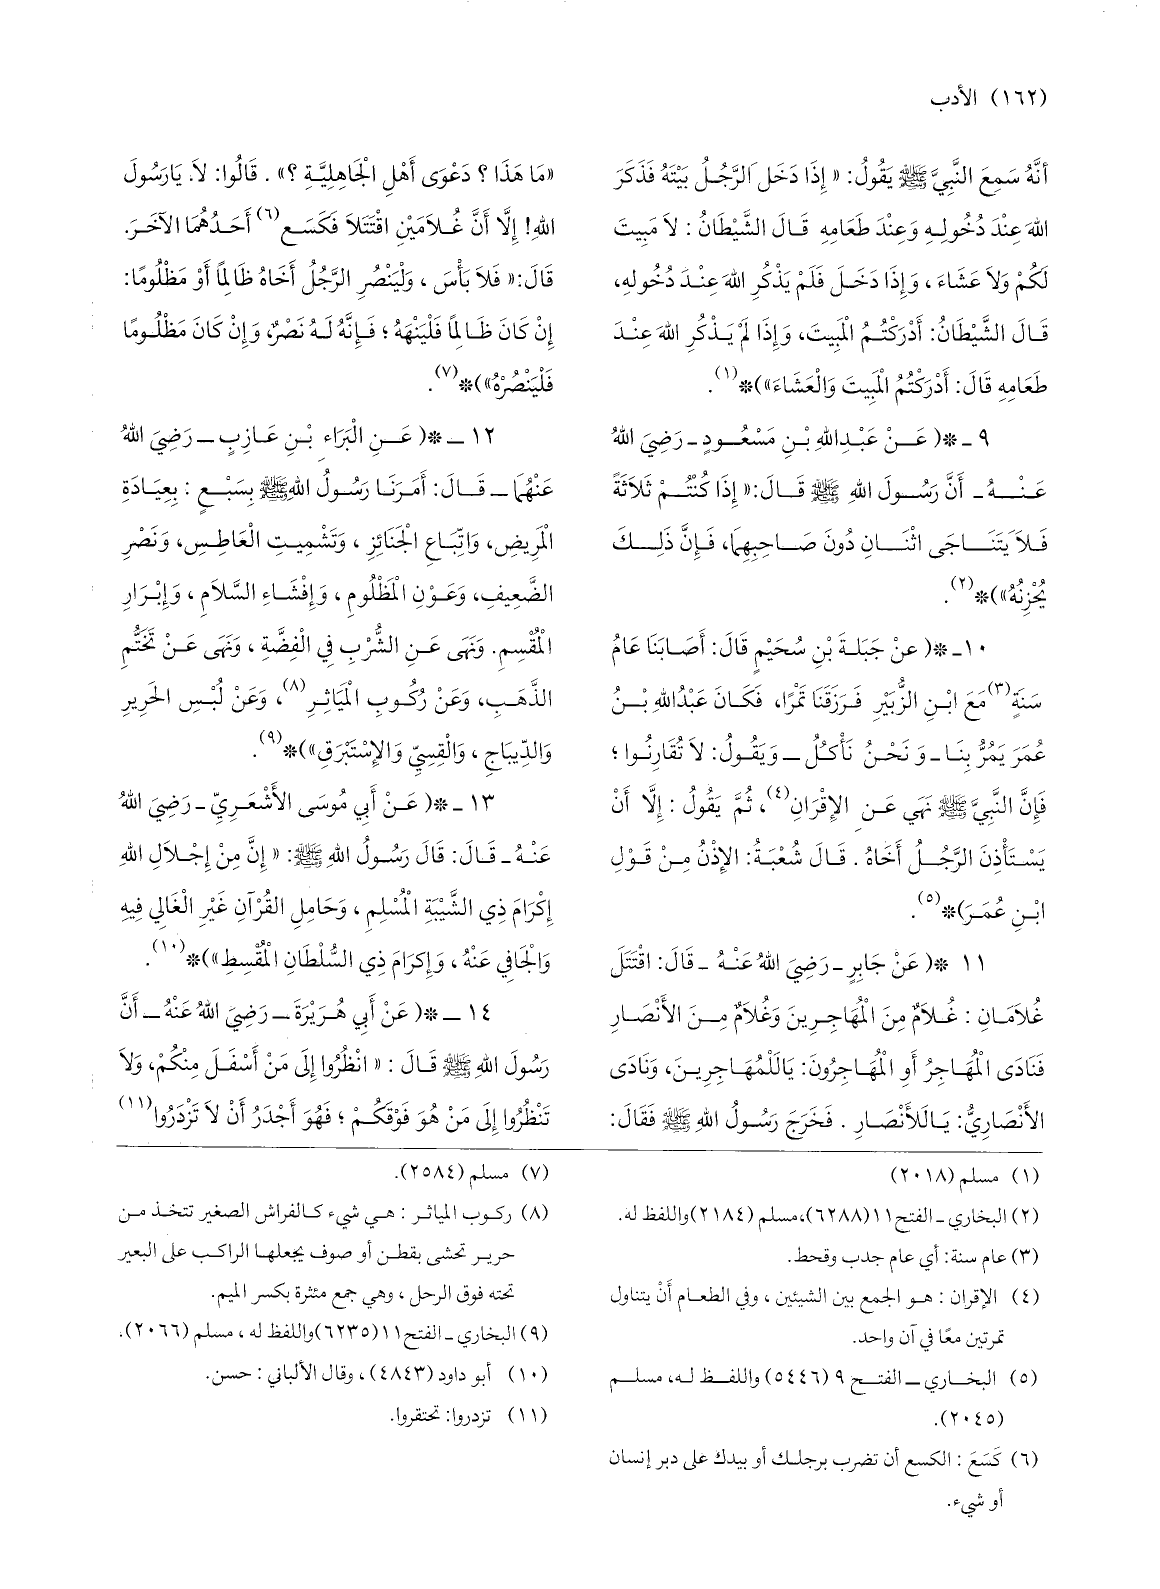 (١٦٢) الأدب
أنَّهُ سَمِعَ النَّبِيَّ ﷺ يَقُولُ: « إِذَا دَخَل الرَّجُلُ بَيْتَهُ فَذَكَرَ
اللهَ عِنْدَ دُخُولِهِ وَعِنْدَ طَعَامِهِ قَالَ الشَّيْطَانُ : لاَ مَبِيتَ
لَكُمْ وَلاَ عَشَاءَ ، وَإِذَا دَخَلَ فَلَمْ يَذْكُرِ اللهَ عِنْدَ دُخُولِهِ،
قَالَ الشَّيْطَانُ: أَدْرَكْتُمُ الْمَبِيتَ، وَإِذَا لَمْ يَذْكُرِ اللهَ عِنْدَ
طَعَامِهِ قَالَ: أَدْرَكْتُمُ الْمَبِيتَ وَالْعَشَاءَ»)*(١).
٩ ـ *( عَنْ عَبْدِاللهِ بْنِ مَسْعُودٍ ـ رَضِيَ اللهُ
عَنْهُ ـ أَنَّ رَسُولَ اللهِ ﷺ قَالَ:« إِذَا كُنْتُمْ ثَلاَثَةً
فَلاَ يَتَنَاجَى اثْنَانِ دُونَ صَاحِبِهِمَا، فَإِنَّ ذَلِكَ
يُحْزِنُهُ»)*(٢).
١٠ـ *( عنْ جَبَلَةَ بْنِ سُحَيْمٍ قَالَ: أَصَابَنَا عَامُ
سَنَةٍ(٣) مَعَ ابْنِ الزُّبَيْرِ فَرَزَقَنَا تَمْرًا، فَكَانَ عَبْدُاللهِ بْنُ
عُمَرَ يَمُرُّ بِنَا ـ وَ نَحْنُ نَأْكُلُ ـ وَيَقُولُ: لاَ تُقَارِنُوا ؛
فَإِنَّ النَّبِيَّ ﷺ نَهَى عَنِ الإِقْرَانِ(٤)، ثُمَّ يَقُولُ : إِلَّا أَنْ
يَسْتَأْذِنَ الرَّجُلُ أَخَاهُ . قَالَ شُعْبَةُ: الإِذْنُ مِنْ قَوْلِ
ابْنِ عُمَرَ)*(٥).
١١ *( عَنْ جَابِرٍ ـ رَضِيَ اللهُ عَنْهُ ـ قَالَ: اقْتَتَلَ
غُلاَمَانِ : غُلاَمٌ مِنَ الْمُهَاجِرِينَ وَغُلاَمٌ مِنَ الأَنْصَارِ
فَنَادَى الْمُهَاجِرُ أَوِ الْمُهَاجِرُونَ: يَالَلْمُهَاجِرِينَ، وَنَادَى
الأَنْصَارِيُّ: يَالَلأَنْصَارِ . فَخَرَجَ رَسُولُ اللهِ ﷺ فَقَالَ:
«مَا هَذَا ؟ دَعْوَى أَهْلِ الْجَاهِلِيَّةِ ؟» . قَالُوا: لاَ. يَارَسُولَ
اللهِ! إِلَّا أَنَّ غُلاَمَيْنِ اقْتَتَلاَ فَكَسَعَ(٦) أَحَدُهُمَا الآخَرَ.
قَالَ:« فَلاَ بَأْسَ ، وَلْيَنْصُرِ الرَّجُلُ أَخَاهُ ظَالِمًا أَوْ مَظْلُومًا:
إِنْ كَانَ ظَالِمًا فَلْيَنْهَهُ ؛ فَإِنَّهُ لَهُ نَصْرٌ، وَإِنْ كَانَ مَظْلُومًا
فَلْيَنْصُرْهُ»)*(٧).
١٢ ـ *( عَنِ الْبَرَاءِ بْنِ عَازِبٍ ـ رَضِيَ اللهُ
عَنْهُمَا ـ قَالَ: أَمَرَنَا رَسُولُ اللهِ ﷺ بِسَبْعٍ : بِعِيَادَةِ
الْمَرِيضِ، وَاتِّبَاعِ الْجَنَائِزِ ، وَتَشْمِيتِ الْعَاطِسِ، وَنَصْرِ
الضَّعِيفِ، وَعَوْنِ الْمَظْلُومِ ، وَإِفْشَاءِ السَّلاَمِ ، وَإِبْرَارِ
الْمُقْسِمِ. وَنَهَى عَنِ الشُّرْبِ فِي الْفِضَّةِ ، وَنَهَى عَنْ تَخَتُّمِ
الذَّهَبِ، وَعَنْ رُكُوبِ الْمَيَاثِرِ(٨)، وَعَنْ لُبْسِ الْحَرِيرِ
وَالدِّيبَاجِ ، وَالْقِسِيِّ وَالإِسْتَبْرَقِ»)*(٩).
١٣ ـ *( عَنْ أَبِي مُوسَى الأَشْعَرِيِّ ـ رَضِيَ اللهُ
عَنْهُ ـ قَالَ: قَالَ رَسُولُ اللهِ ﷺ: « إِنَّ مِنْ إِجْلاَلِ اللهِ
إِكْرَامَ ذِي الشَّيْبَةِ الْمُسْلِمِ ، وَحَامِلِ الْقُرْآنِ غَيْرِ الْغَالِي فِيهِ
وَالْجَافِي عَنْهُ ، وَإِكْرَامَ ذِي السُّلْطَانِ الْمُقْسِطِ»)*(١٠).
١٤ ـ *( عَنْ أَبِي هُرَيْرَةَ ـ رَضِيَ اللهُ عَنْهُ ـ أَنَّ
رَسُولَ اللهِ ﷺ قَالَ : « انْظُرُوا إِلَى مَنْ أَسْفَلَ مِنْكُمْ، وَلاَ
تَنْظُرُوا إِلَى مَنْ هُوَ فَوْقَكُمْ ؛ فَهُوَ أَجْدَرُ أَنْ لاَ تَزْدَرُوا(١١)
(١) مسلم (٢٠١٨)
(٢) البخاري ـ الفتح١١(٦٢٨٨)،مسلم (٢١٨٤)واللفظ له.
(٣) عام سنة: أي عام جدب وقحط.
(٤) الإقران : هو الجمع بين الشيئين ، وفي الطعام أنْ يتناول
تمرتين معًا في آن واحد.
(٥) البخاري ـ الفتح ٩ (٥٤٤٦) واللفظ له، مسلم
(٢٠٤٥).
(٦) كَسَعَ : الكسع أن تضرب برجلك أو بيدك على دبر إنسان
أو شيء.
(٧) مسلم (٢٥٨٤).
(٨) ركوب المياثر : هي شيء كالفراش الصغير تتخذ من
حرير تحشى بقطن أو صوف يجعلها الراكب على البعير
تحته فوق الرحل ، وهي جمع مئثرة بكسر الميم.
(٩) البخاري ـ الفتح١١(٦٢٣٥)واللفظ له ، مسلم (٢٠٦٦).
(١٠) أبو داود (٤٨٤٣) ، وقال الألباني : حسن.
(١١) تزدروا: تحتقروا.